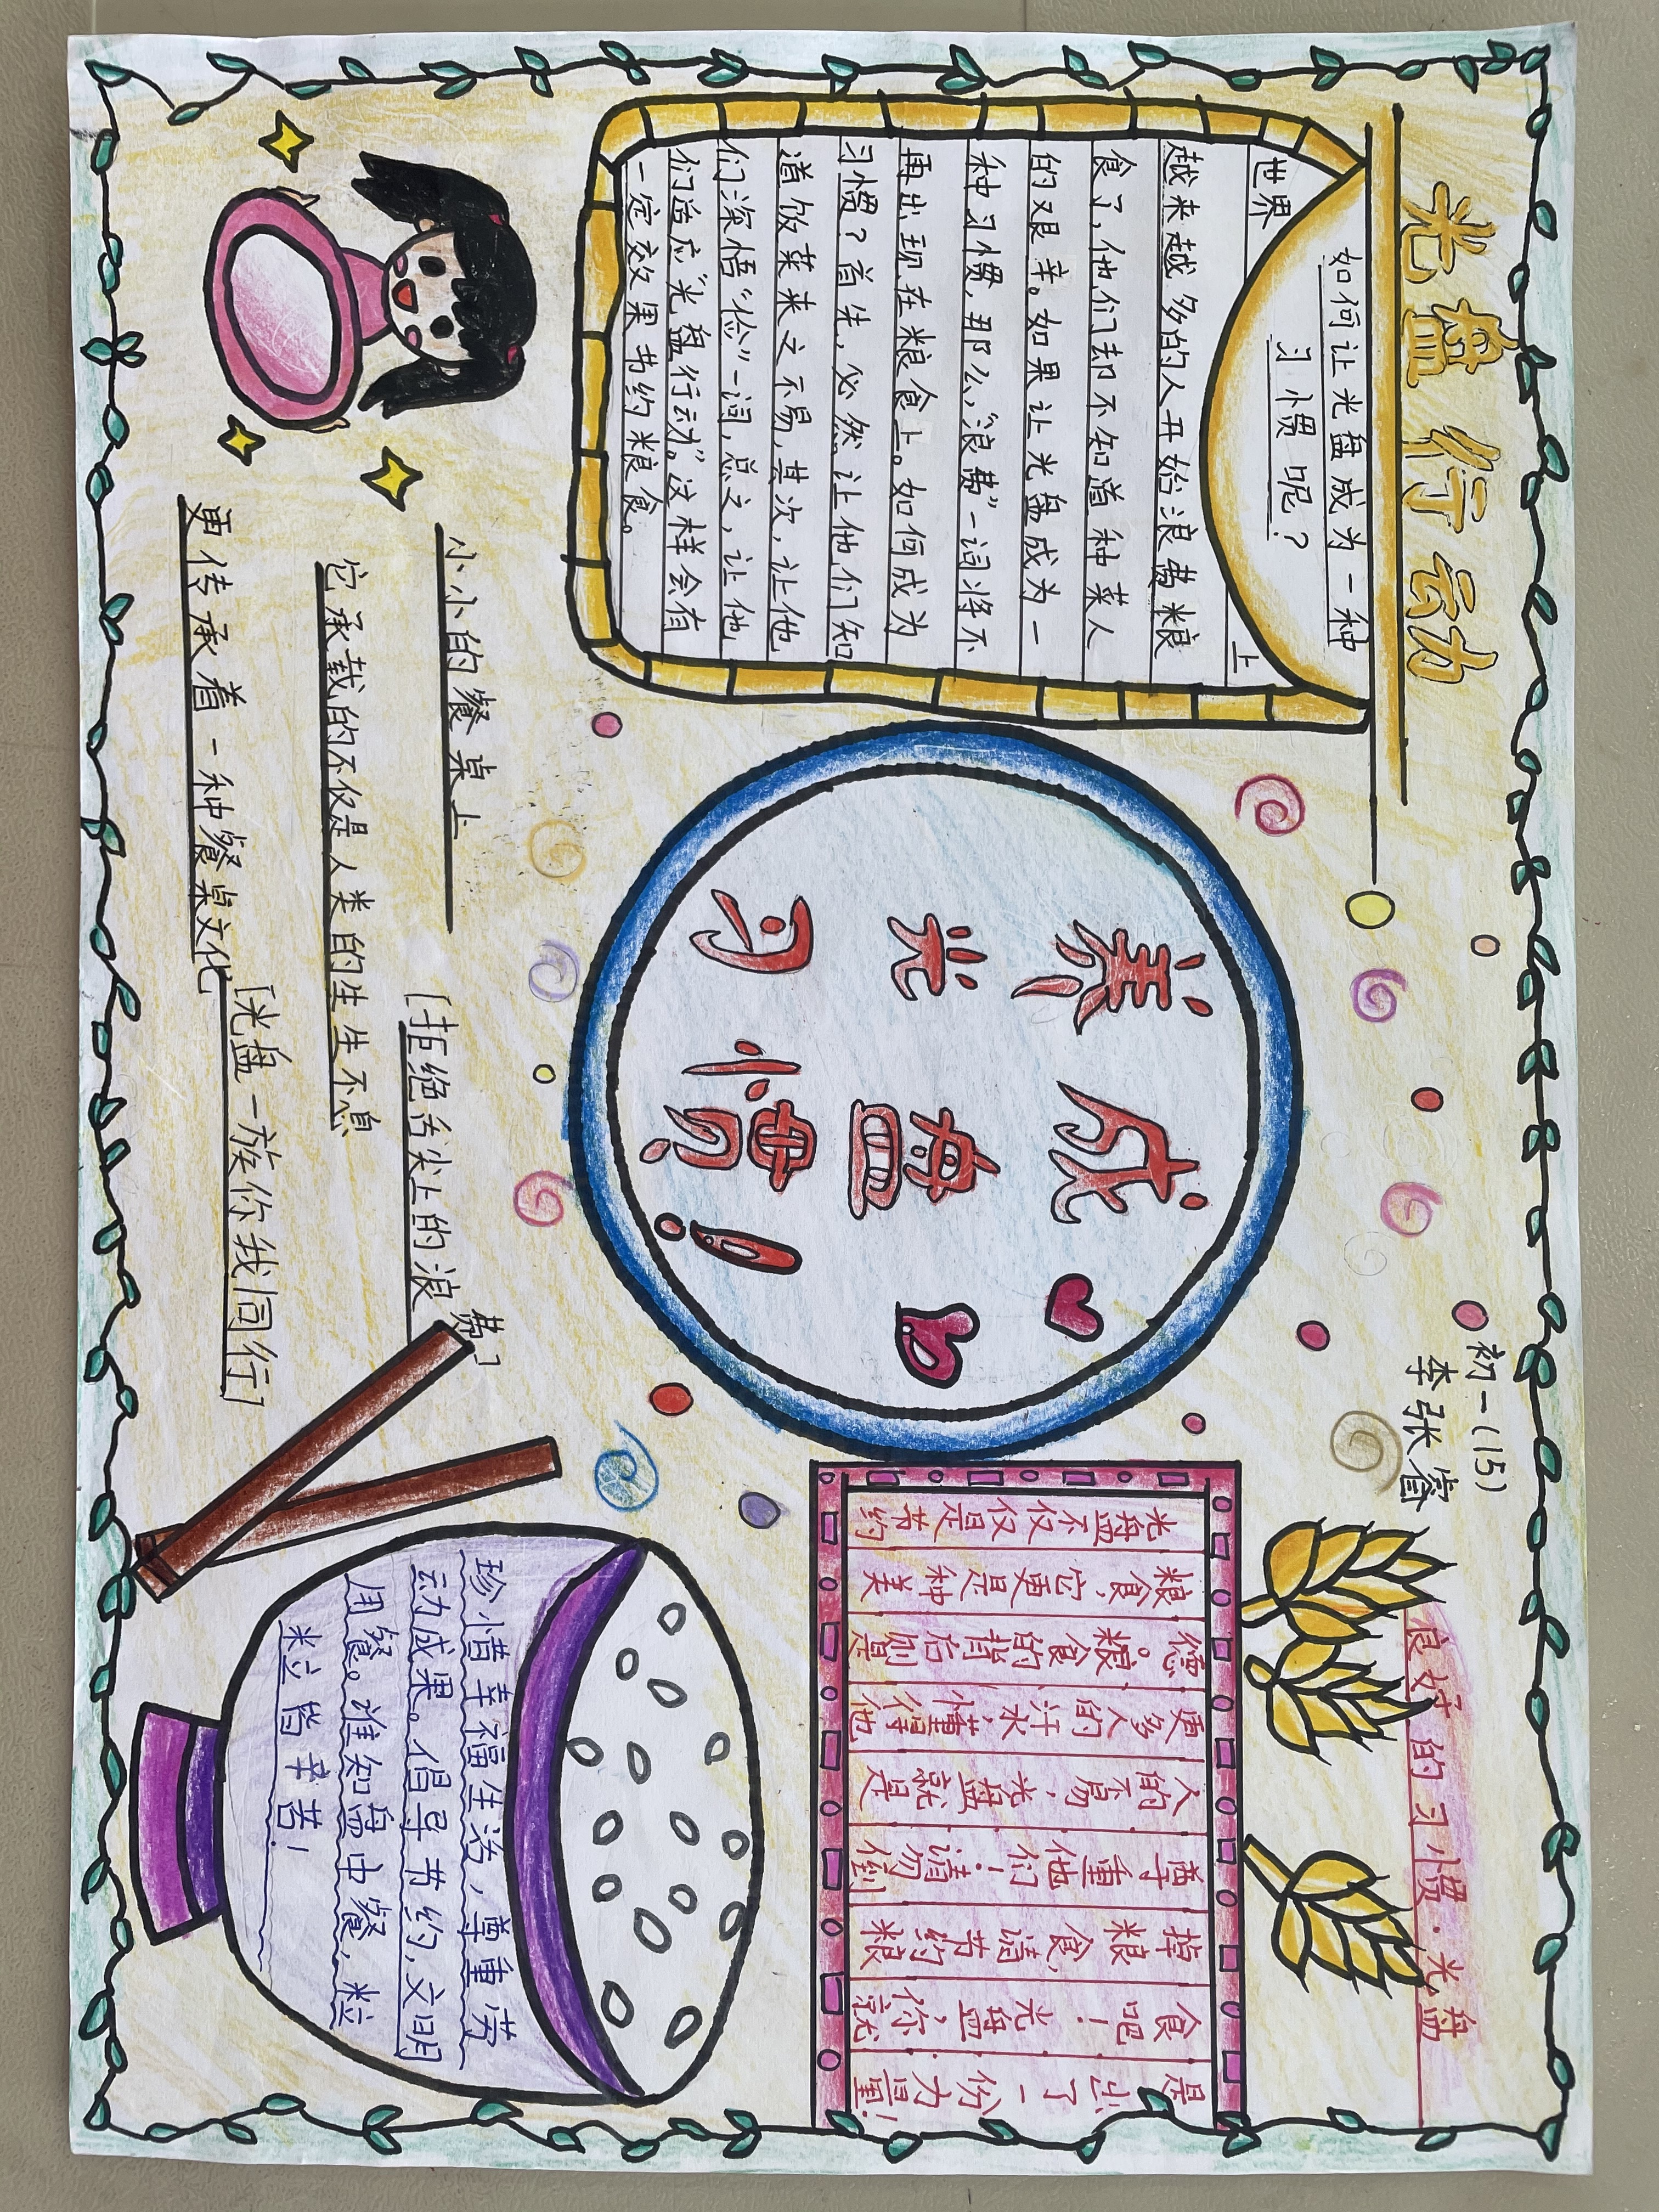 光盘行动
初一(15)
李张睿
如何让光盘成为一种
习惯呢？
世界 上
越来越多的人开始浪费粮
食了，他们却不知道种菜人
的艰辛。如果让光盘成为一
种习惯，那么，“浪费”一词将不
再出现在粮食上。如何成为
习惯？首先，必然让他们知
道饭菜来之不易，其次，让他
们深悟“俭”一词，总之，让他
们适应“光盘行动”。这样会有
一定效果节约粮食。
养成
光盘
习惯！
良好的习惯·光盘
光盘不仅是节约
粮食，它更是种美
德。粮食的背后则是
更多人的汗水，懂得他
人的不易，光盘就是
尊重他们！请勿倒
掉粮食，请节约粮
食吧！光盘，你就
是出了一份力量！
小小的餐桌上
[拒绝舌尖上的浪费]
它承载的不仅是人类的生生不息
更传承着一种餐桌文化
[光盘一族你我同行]
珍惜幸福生活，尊重劳
动成果。倡导节约，文明
用餐。谁知盘中餐，粒
粒皆辛苦！